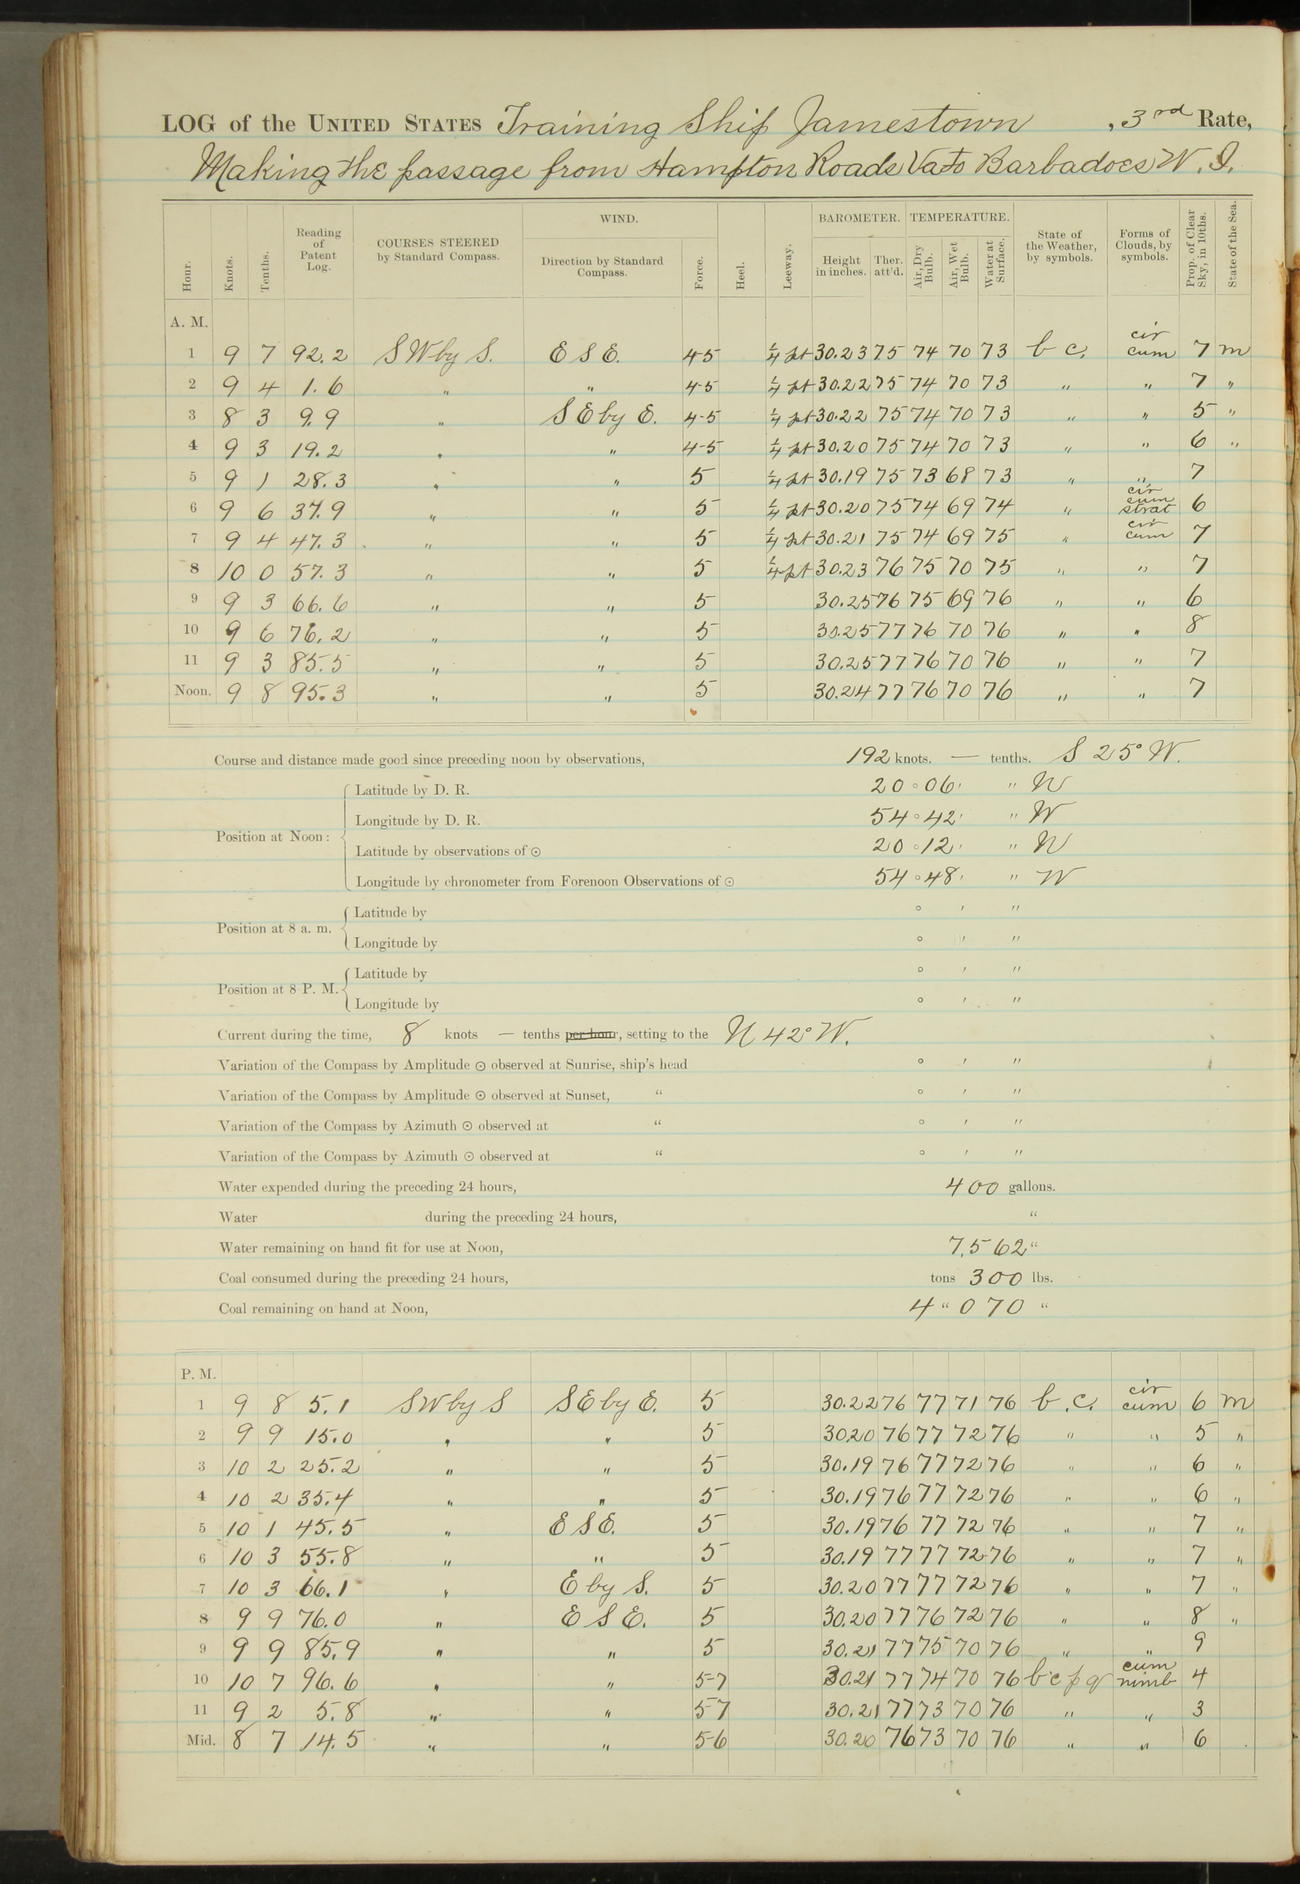 LOG of the UNITED STATES Training Ship Jamestown , 3rd Rate,
Making the passage from Hampton Roads Va to Barbadoes W. I.
Hour. Knots. Tenths. Reading of Patent Log. COURSES STEERED by Standard Compass. WIND. Direction by Standard Compass. Force. Heel. Leeway. BAROMETER. Height in inches. Ther. att'd. TEMPERATURE. Air, Dry Bulb. Air, Wet Bulb. Water at Surface. State of the Weather, by symbols. Forms of Clouds, by symbols. Prop. of Clear Sky, in 10ths. State of the Sea.
A. M.
1 9 7 92.2 SW by S. E S E. 4-5 ¼ pt 30.23 75 74 70 73 b c. cir cum 7 m
2 9 4 1.6 " " 4-5 ¼ pt 30.22 75 74 70 73 " " 7 "
3 8 3 9.9 " SE by E. 4-5 ¼ pt 30.22 75 74 70 73 " " 5 "
4 9 3 19.2 " " 4-5 ¼ pt 30.20 75 74 70 73 " " 6 "
5 9 1 28.3 " " 5 ¼ pt 30.19 75 73 68 73 " " 7
6 9 6 37.9 " " 5 ¼ pt 30.20 75 74 69 74 " cir cum strat 6
7 9 4 47.3 " " 5 ¼ pt 30.21 75 74 69 75 " cir cum 7
8 10 0 57.3 " " 5 ¼ pt 30.23 76 75 70 75 " " 7
9 9 3 66.6 " " 5 30.25 76 75 69 76 " " 6
10 9 6 76.2 " " 5 30.25 77 76 70 76 " " 8
11 9 3 85.5 " " 5 30.25 77 76 70 76 " " 7
Noon. 9 8 95.3 " " 5 30.24 77 76 70 76 " " 7
Course and distance made good since preceding noon by observations, 192 knots. — tenths. S 25° W.
Position at Noon:
Latitude by D. R. 20° 06' " N
Longitude by D. R. 54° 42' " W
Latitude by observations of ☉ 20° 12' " N
Longitude by chronometer from Forenoon Observations of ☉ 54° 48' " W
Position at 8 a. m.
Latitude by ° ' "
Longitude by ° ' "
Position at 8 P. M.
Latitude by ° ' "
Longitude by ° ' "
Current during the time, 8 knots — tenths per hour, setting to the N 42° W.
Variation of the Compass by Amplitude ☉ observed at Sunrise, ship's head ° ' "
Variation of the Compass by Amplitude ☉ observed at Sunset, " ° ' "
Variation of the Compass by Azimuth ☉ observed at " ° ' "
Variation of the Compass by Azimuth ☉ observed at " ° ' "
Water expended during the preceding 24 hours, 400 gallons.
Water during the preceding 24 hours, "
Water remaining on hand fit for use at Noon, 7,562 "
Coal consumed during the preceding 24 hours, tons 300 lbs.
Coal remaining on hand at Noon, 4 " 070 "
P. M.
1 9 8 5.1 SW by S SE by E. 5 30.22 76 77 71 76 b.c. cir cum 6 m
2 9 9 15.0 " " 5 3020 76 77 72 76 " " 5 "
3 10 2 25.2 " " 5 30.19 76 77 72 76 " " 6 "
4 10 2 35.4 " " 5 30.19 76 77 72 76 " " 6 "
5 10 1 45.5 " E S E. 5 30.19 76 77 72 76 " " 7 "
6 10 3 55.8 " " 5 30.19 77 77 72 76 " " 7 "
7 10 3 66.1 " E by S. 5 30.20 77 77 72 76 " " 7 "
8 9 9 76.0 " E S E. 5 30.20 77 76 72 76 " " 8 "
9 9 9 85.9 " " 5 30.21 77 75 70 76 " " 9
10 10 7 96.6 " " 5-7 30.21 77 74 70 76 b c p q cum nimb 4
11 9 2 5.8 " " 5-7 30.21 77 73 70 76 " " 3
Mid. 8 7 14.5 " " 5-6 30.20 76 73 70 76 " " 6